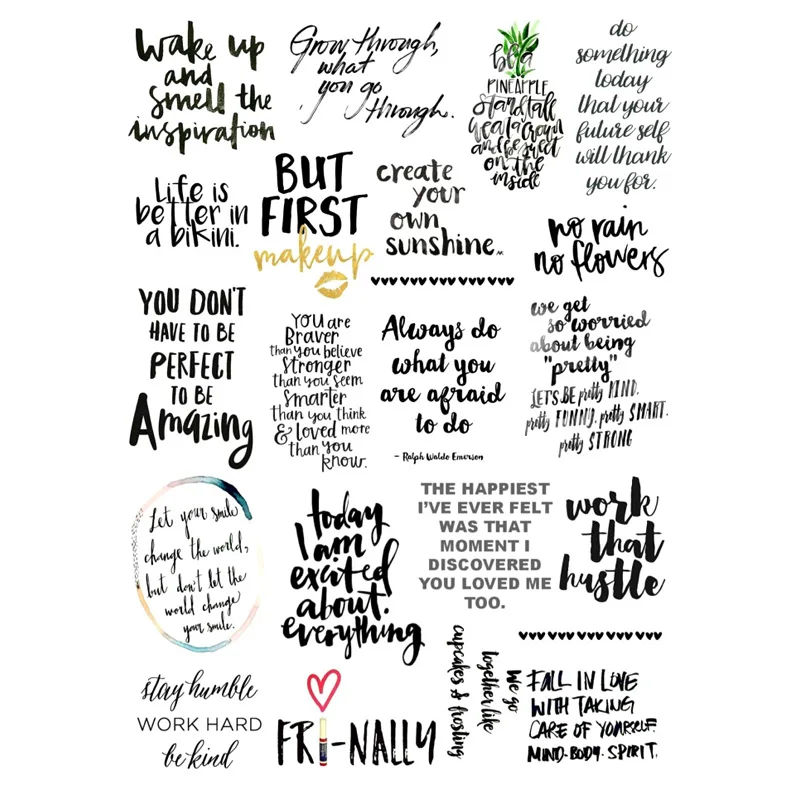 wake up
and
smell the
inspiration
Grow through,
what
you go
through.
be a
PINEAPPLE
stand tall
wear a crown
and be sweet
on the
inside
do
something
today
that your
future self
will thank
you for.
Life is
better in
a bikini.
BUT
FIRST
makeup
create
your
own
sunshine.
no rain
no flowers
YOU DON'T
HAVE TO BE
PERFECT
TO BE
Amazing
You are
Braver
than you believe
Stronger
than you seem
Smarter
than you think
& loved more
than you
know.
Always do
what you
are afraid
to do
- Ralph Waldo Emerson
we get
so worried
about being
"pretty"
LET'S BE pretty KIND.
pretty FUNNY. pretty SMART.
pretty STRONG
Let your smile
change the world,
but don't let the
world change
your smile.
today
I am
excited
about.
everything
THE HAPPIEST
I'VE EVER FELT
WAS THAT
MOMENT I
DISCOVERED
YOU LOVED ME
TOO.
work
that
hustle
stay humble
WORK HARD
be kind
FRI-NALLY
We go
together like
cupcakes & frosting
FALL IN LOVE
WITH TAKING
CARE OF YOURSELF.
MIND-BODY-SPIRIT.